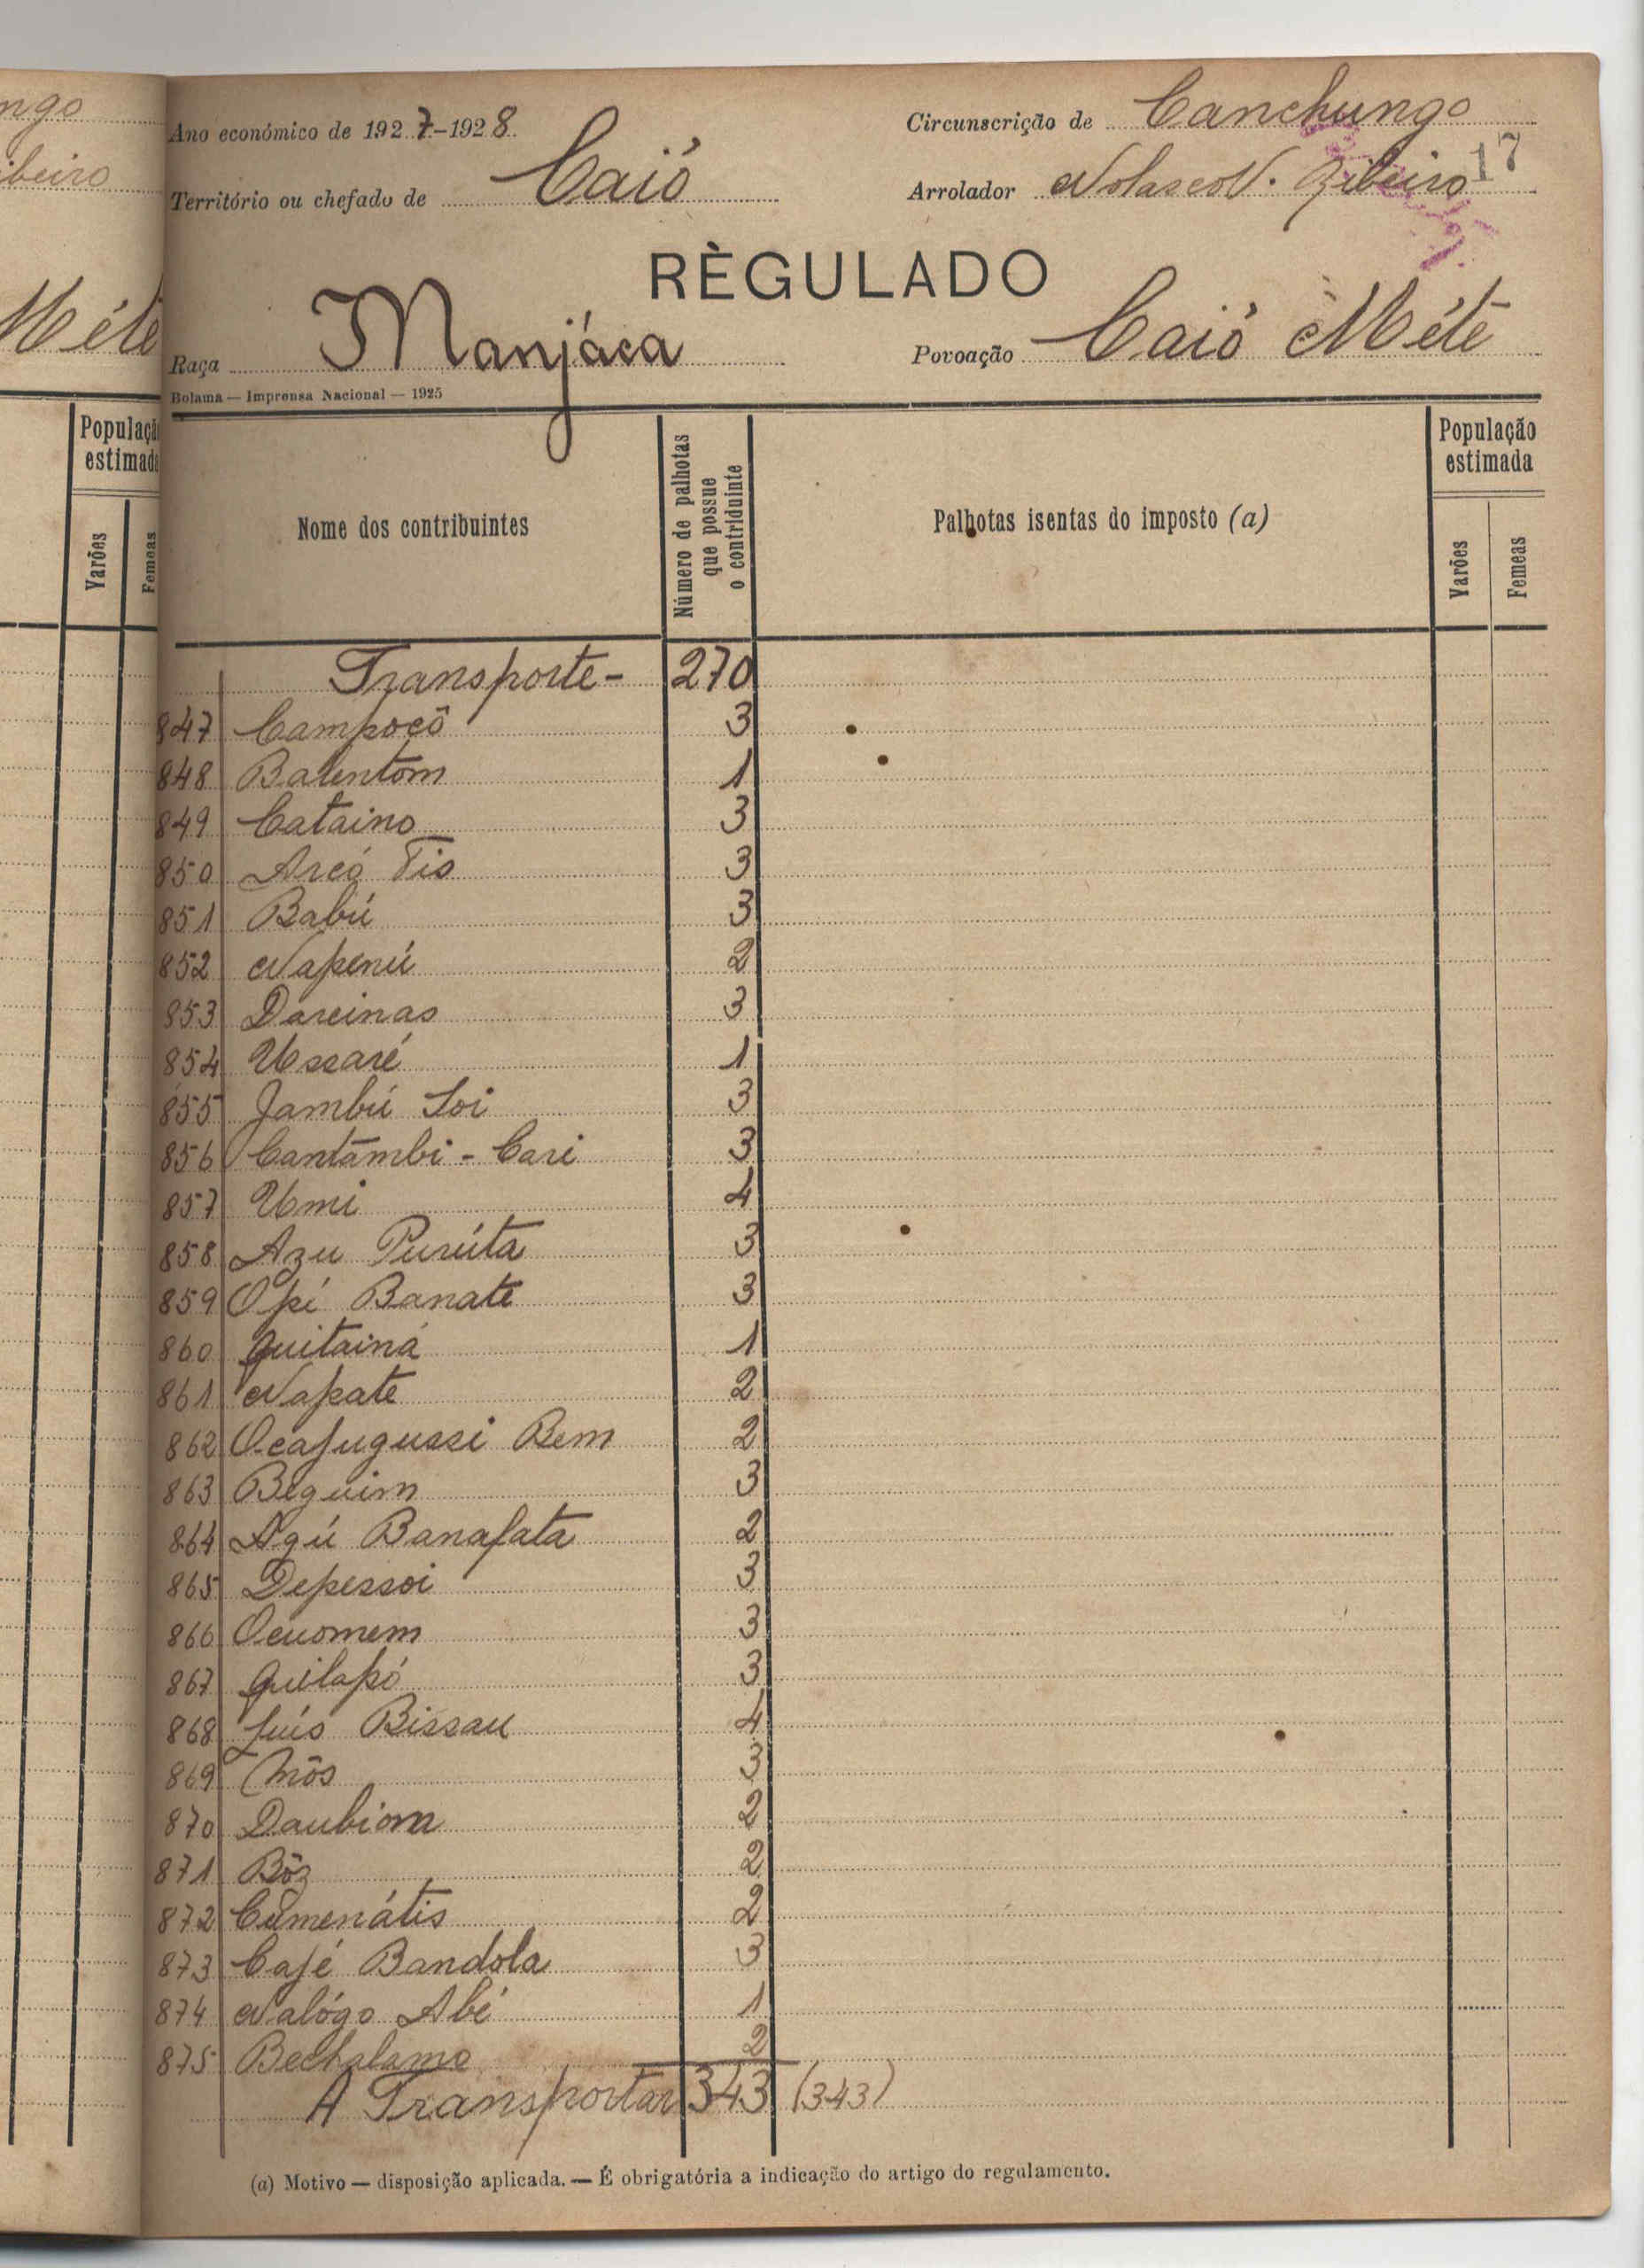 ngo
ibeiro
Méte
População
estimada
Varões
Femeas
Ano económico de 1927-1928
Circunscrição de Canchungo
17
Território ou chefado de Caió
Arrolador Nolasco N. Ribeiro
RÈGULADO
Raça Manjáca
Povoação Caió Méte
Bolama — Imprensa Nacional — 1925
Nome dos contribuintes
Número de palhotas que possue o contriduinte
Palhotas isentas do imposto (a)
População estimada
Varões
Femeas
Transporte - 270
847 Campocô 3
848 Batentom 1
849 Cataino 3
850 Arcó Tis 3
851 Babú 3
852 Napenú 2
853 Darcinas 3
854 Ussaré 1
855 Jambú Soi 3
856 Cantambi - Cari 3
857 Umi 4
858 Azu Purúta 3
859 Opí Banate 3
860 Quitainá 1
861 Napate 2
862 Ocafugussi Bem 2
863 Beguim 3
864 Agú Banafata 2
865 Depessoi 3
866 Ocuomem 3
867 Quilapó 3
868 Luís Bissau 4
869 Môs 3
870 Daubiom 2
871 Bôz 2
872 Cumenátis 2
873 Café Bandola 3
874 Nalógo Abé 1
875 Bechalame 2
A Transportar 343 (343)
(a) Motivo — disposição aplicada. — É obrigatória a indicação do artigo do regulamento.